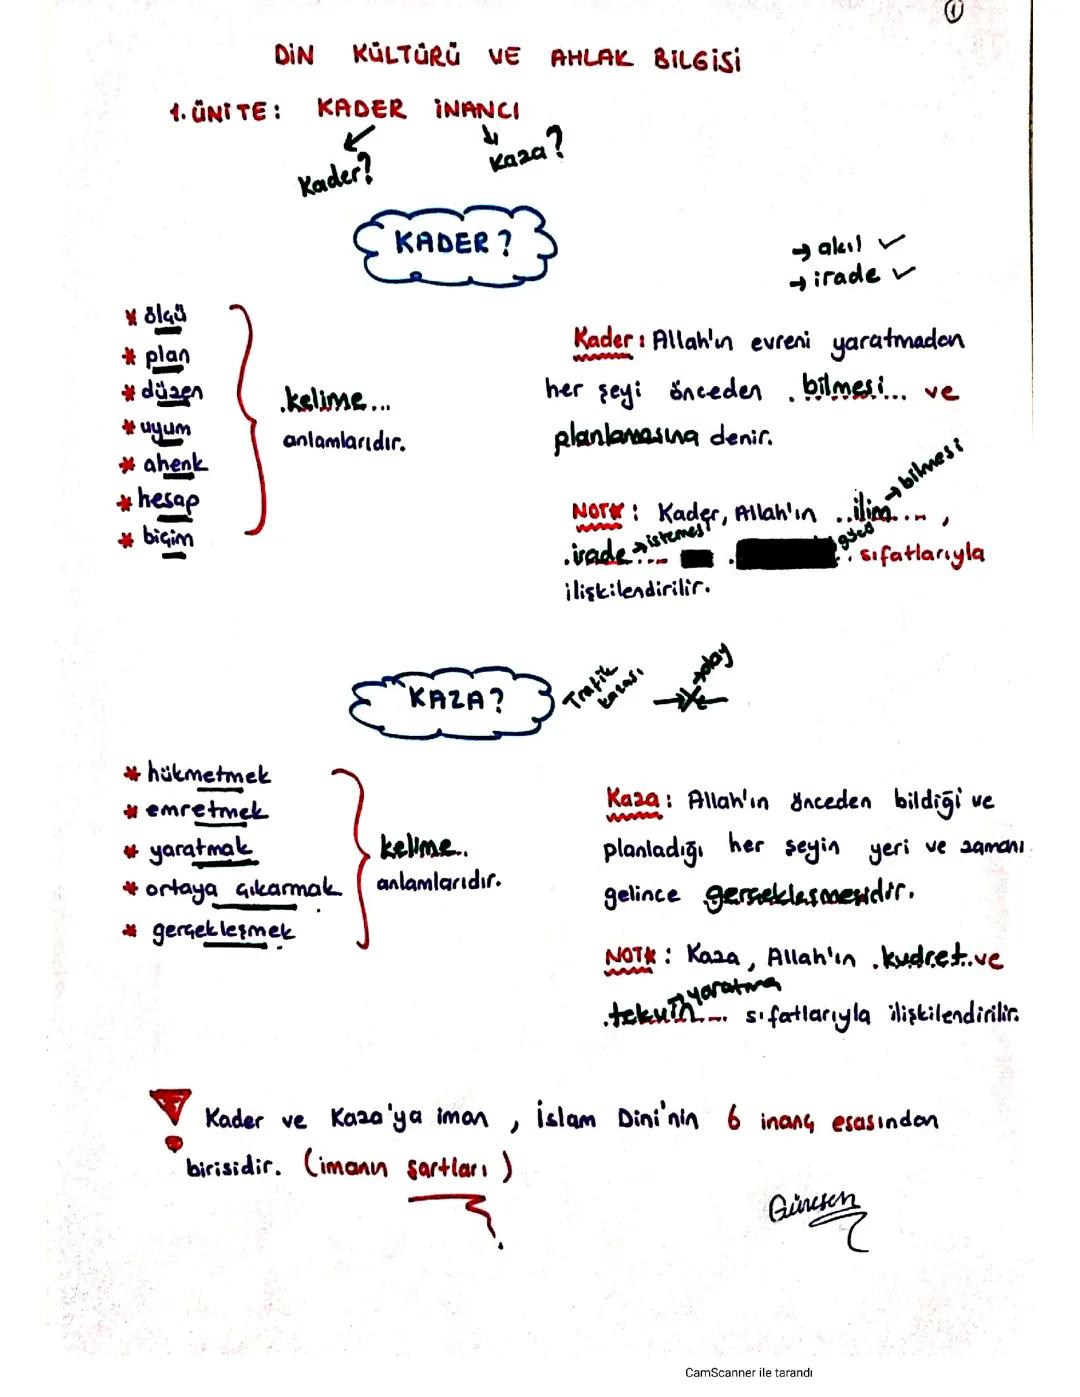 1
DİN KÜLTÜRÜ VE AHLAK BİLGİSİ
1. ÜNİTE: KADER İNANCI
Kader?
Kaza?
KADER?
→ akıl ✓
→ irade ✓
* ölçü
* plan
* düzen
* uyum
* ahenk
* hesap
* biçim
.kelime...
anlamlarıdır.
Kader: Allah'ın evreni yaratmadan
her şeyi önceden .bilmesi... ve
planlamasına denir.
NOT*: Kader, Allah'ın ..ilim...., → bilmesi
.irade.... → istemesi . güç .. sıfatlarıyla
ilişkilendirilir.
KAZA?
Trafik
kazası
→ olay
* hükmetmek
* emretmek
* yaratmak
* ortaya çıkarmak
* gerçekleşmek
kelime..
anlamlarıdır.
Kaza: Allah'ın önceden bildiği ve
planladığı her şeyin yeri ve zamanı
gelince gerçekleşmesidir.
NOT*: Kaza, Allah'ın .kudret..ve
.tekvin.... → yaratma sıfatlarıyla ilişkilendirilir.
Kader ve Kaza'ya iman, İslam Dini'nin 6 inanç esasından
birisidir. (imanın şartları)
CamScanner ile tarandı